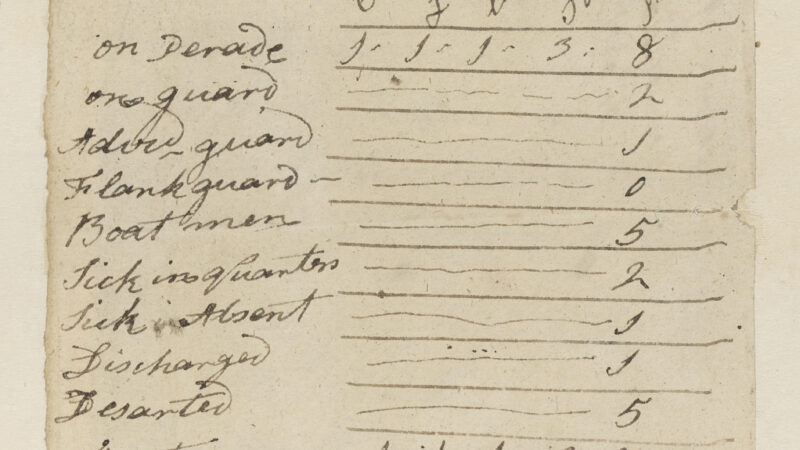 on Perade 1 - 1 - 1 - 3 : 8
on guard 2
Advd guard 1
Flank guard - 0
Boat men 5
Sick in quarters 2
Sick Absent 1
Discharged 1
Desarted 5